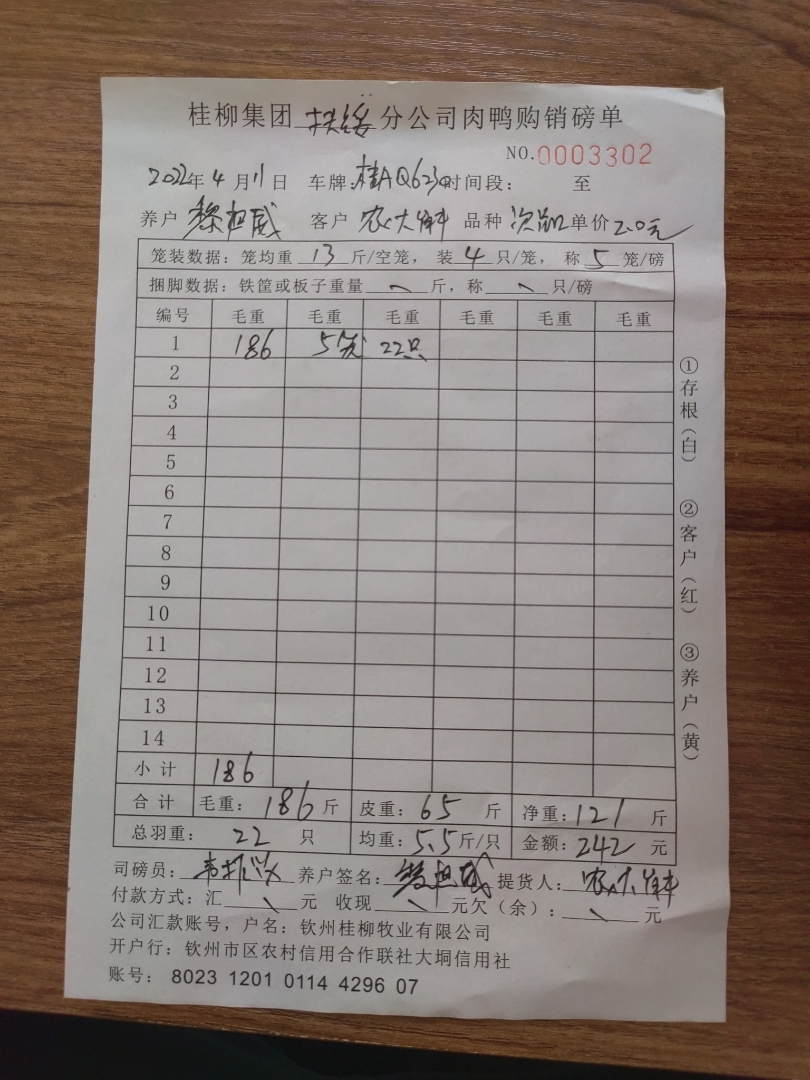 桂柳集团 扶绥 分公司肉鸭购销磅单
NO.0003302
2022年4月11日 车牌:桂AQ623 时间段: 至
养户 黎担威 客户 农大 品种 次品 单价 2.0元
笼装数据:笼均重 13 斤/空笼,装 4 只/笼,称 5 笼/磅
捆脚数据:铁筐或板子重量 斤,称 只/磅
编号 毛重 毛重 毛重 毛重 毛重 毛重
1 186 5笼 22只
2
3
4
5
6
7
8
9
10
11
12
13
14
小计 186
合计 毛重:186斤 皮重:65斤 净重:121斤
总羽重:22只 均重:5.5斤/只 金额:242元
司磅员: 养户签名:黎担威 提货人:农大
付款方式:汇 元 收现 元欠(余): 元
公司汇款账号,户名:钦州桂柳牧业有限公司
开户行:钦州市区农村信用合作联社大垌信用社
账号:8023 1201 0114 4296 07
①存根(白)
②客户(红)
③养户(黄)